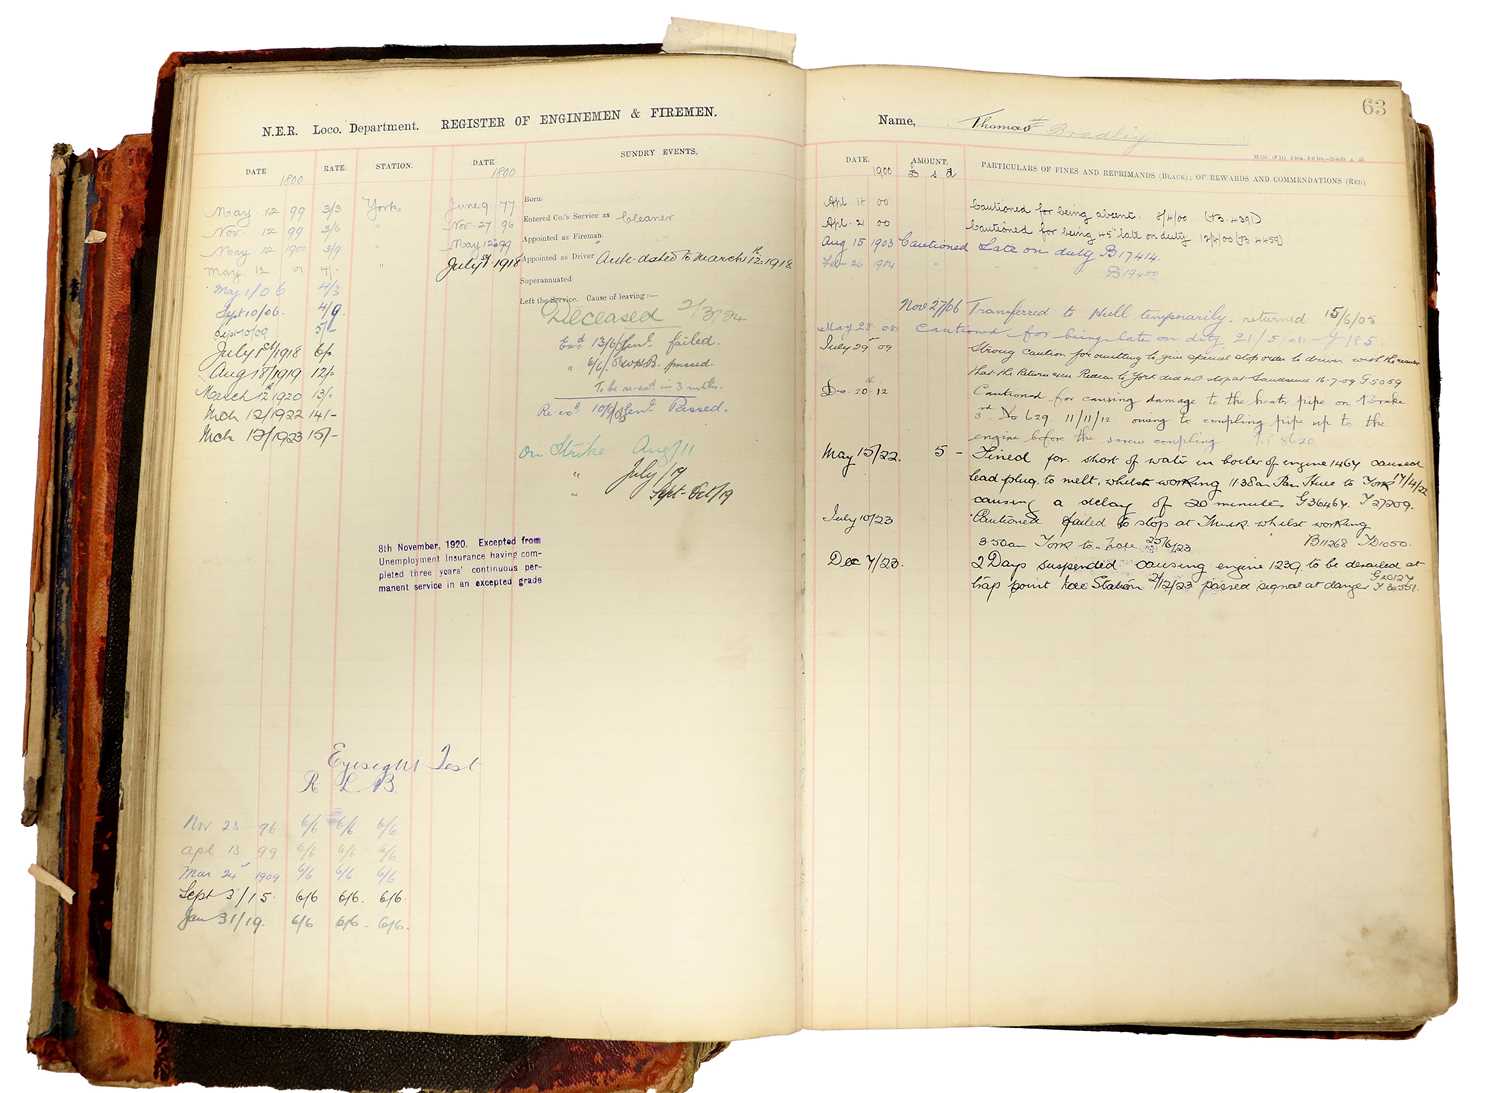 N.E.R. Loco. Department. REGISTER OF ENGINEMEN & FIREMEN.
DATE RATE. STATION. DATE SUNDRY EVENTS.
1800 1800
May 12 99 3/3 York
Nov 12 99 3/6 "
May 12 1900 3/9 "
May 12 01 4/- "
May 1/06 4/3
Sept 10/06. 4/9
Sept 10/09 5/-
July 1st/1918 6/-
Aug 18/1919 12/-
March 12th 1920 13/-
Mch 12/1922 14/-
Mch 12/1923 15/-
June 9 77 Born
Nov 27 96 Entered Co.'s Service as Cleaner
May 12 99 Appointed as Fireman "
July 1st 1918 Appointed as Driver Ante-dated to March 12th 1918
Superannuated
Left the Service. Cause of leaving:—
Deceased 2/3/24
13/6/ failed.
" passed.
To be re-ex in 3 mths.
Passed.
On Strike Aug/11
" July/19
" Sept-Oct/19
8th November, 1920. Excepted from
Unemployment Insurance having com-
pleted three years' continuous per-
manent service in an excepted grade
Eyesight Test
R L B
Nov 23 96 6/6 6/6 6/6
Apl 13 99 6/6 6/6 6/6
Mar 24 1909 6/6 6/6 6/6
Sept 3/15. 6/6 6/6. 6/6.
Jan 31/19. 6/6 6/6 - 6/6.
63
Name, Thomas Bradley
DATE. AMOUNT. PARTICULARS OF FINES AND REPRIMANDS (BLACK); OF REWARDS AND COMMENDATIONS (RED)
1900 £ s d
Apl 18 00 Cautioned for being absent. 8/4/00
Apl 21 00 Cautioned for being 45" late on duty
Aug 15 1903 Cautioned Late on duty B17414.
Feb 26 1904 " " "
Nov 27/06 Transferred to Hull temporarily. returned 15/6/08
May 28 08 Cautioned for being late on duty 21/5/08
July 29 09 Strong caution for omitting to give special stop order to driver with the
that the Return to York did not stop at 16-7-09 G5059
Dec 20th 12 Cautioned for causing damage to the heatg pipe on Brake
3rd No 629 11/11/12 owing to coupling pipe up to the
engine before the screw coupling
May 15/22. 5 - Fined for short of water in boiler of engine 1464 caused
lead plug to melt, whilst working 1138am to York 17/4/22
causing a delay of 20 minutes G36464. Y27259.
July 10/23 Cautioned failed to stop at Thirsk whilst working
350am York to 25/6/23 B11268
Dec 7/23. 2 Days suspended causing engine 1239 to be derailed at
trap point Station passed signal at danger